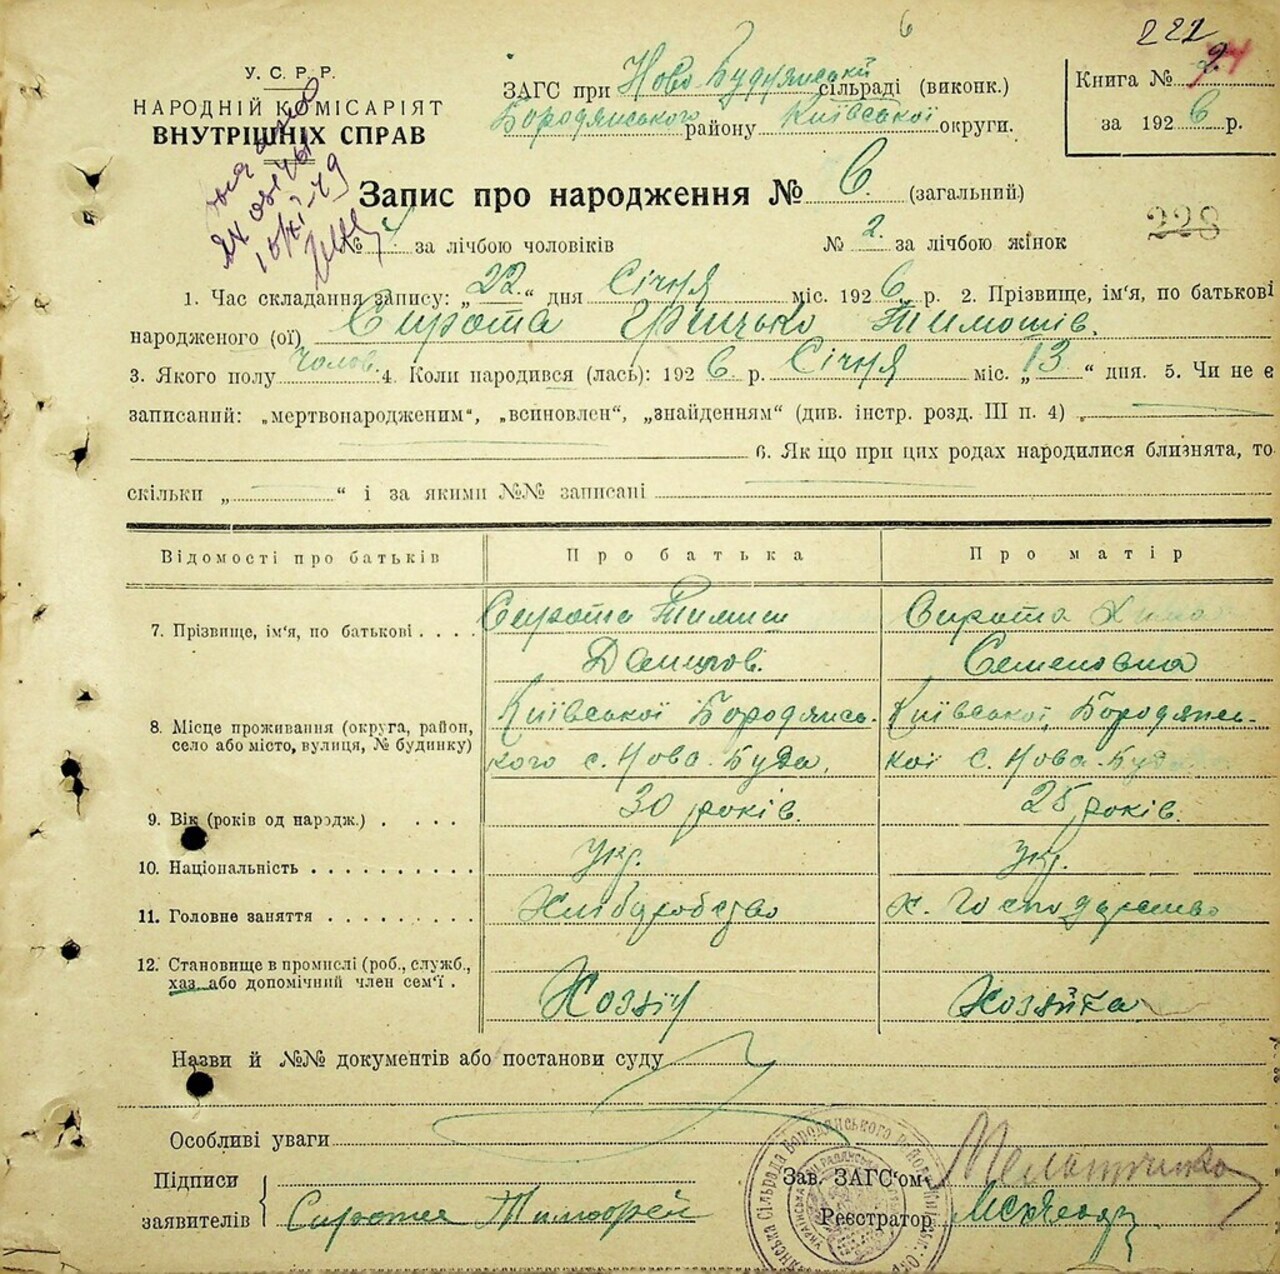 6
222
У. С. Р. Р.
НАРОДНІЙ КОМІСАРІЯТ
ВНУТРІШНІХ СПРАВ
ЗАГС при Ново-Будянській сільраді (виконк.)
Бородянського району Київської округи.
Книга № 2
за 1926 р.
Запис про народження № 6. (загальний)
№ 4 за лічбою чоловіків № 2. за лічбою жінок
228
1. Час складання запису: „22.“ дня Січня міс. 1926 р. 2. Прізвище, ім'я, по батькові
народженого (ої) Сирота Грицько Тимошів.
3. Якого полу чолов. 4. Коли народився (лась): 1926 р. Січня міс. „13“ дня. 5. Чи не є
записаний: „мертвонародженим“, „всиновлен“, „знайденням“ (див. інстр. розд. III п. 4)
6. Якщо при цих родах народилися близнята, то
скільки „ “ і за якими №№ записані
Відомості про батьків Про батька Про матір
7. Прізвище, ім'я, по батькові . . . . Сирота Тимиш Сирота Хима
Данилов. Семеновна
8. Місце проживання (округа, район, село або місто, вулиця, № будинку) Київської Бородянсь- Київської, Бородянсь-
кого с. Нова-Буда, кої с. Нова-Буда
9. Вік (років од нарэдж.) . . . . 30 років. 25 років.
10. Національність . . . . . . . . . . Укр. Укр.
11. Головне заняття . . . . . . . . . Хлібуробство х. Господарство
12. Становище в промислі (роб., служб.,
хаз. або допомічний член сем'ї . Хозяїн Хозяйка
Назви й №№ документів або постанови суду
Особливі уваги
Підписи
заявителів Сирота Тимофей
Зав. ЗАГС'ом
Реєстратор